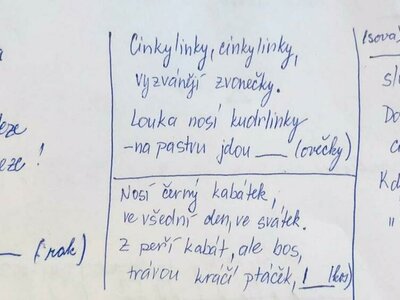 eze
eze!
___ (rak)
Cinkylinky, cinkylinky,
vyzvánějí zvonečky.
Louka nosí kudrlinky
-na pastvu jdou ___ (ovečky)
Nosí černý kabátek,
ve všední den, ve svátek.
Z peří kabát, ale bos,
trávou kráčí ptáček, ___ (kos)
(sova)
sl
Do
Kd
"